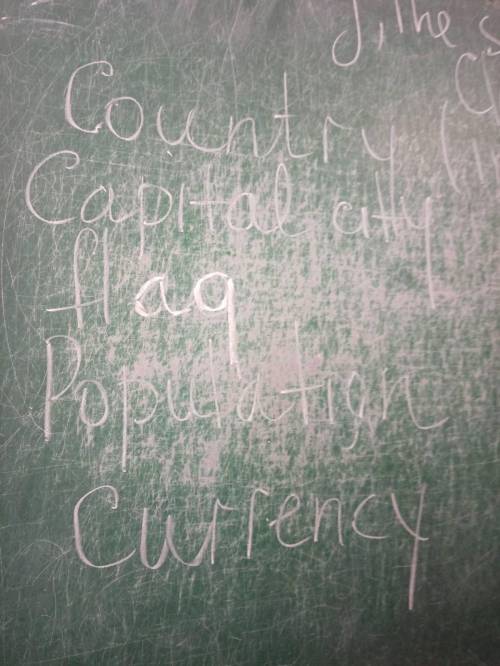 J, The
Country
Capital city
flag
Population
Currency